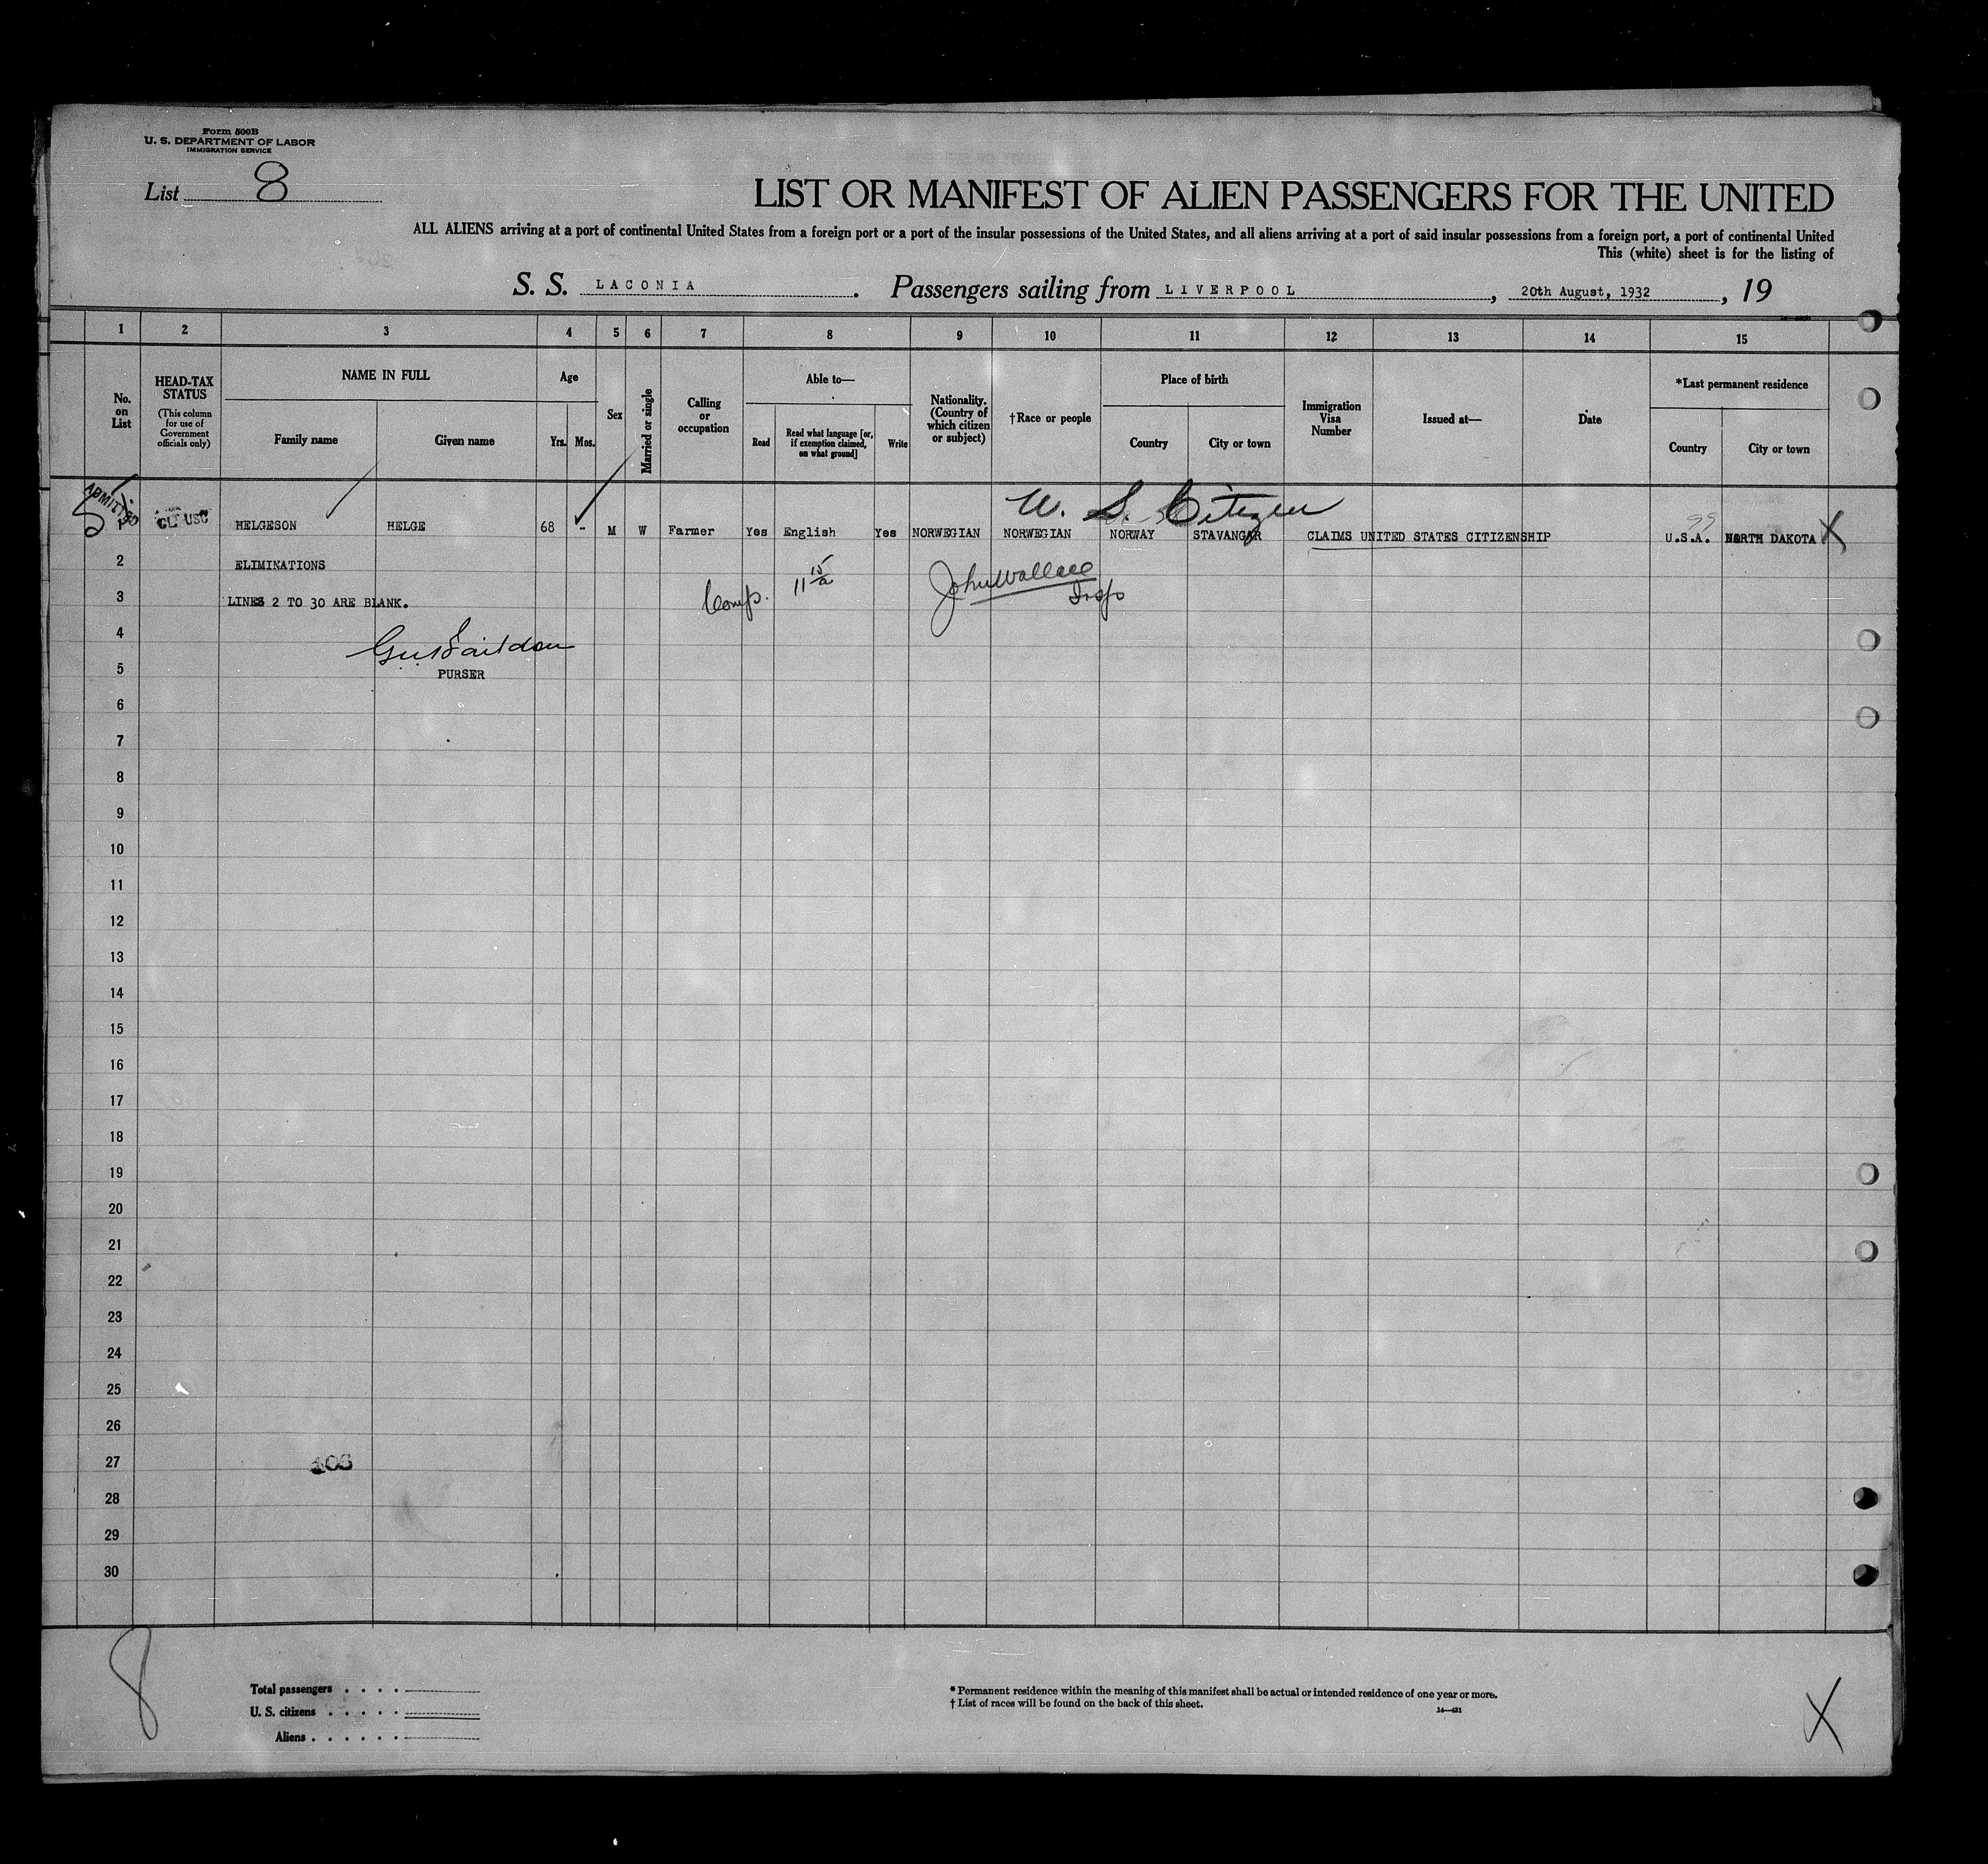 Form 500B
U. S. DEPARTMENT OF LABOR
IMMIGRATION SERVICE
List 8
LIST OR MANIFEST OF ALIEN PASSENGERS FOR THE UNITED
ALL ALIENS arriving at a port of continental United States from a foreign port or a port of the insular possessions of the United States, and all aliens arriving at a port of said insular possessions from a foreign port, a port of continental United
This (white) sheet is for the listing of
S. S. LACONIA. Passengers sailing from LIVERPOOL, 20th August, 1932, 19
1 2 3 4 5 6 7 8 9 10 11 12 13 14 15
No. on List
HEAD-TAX STATUS
(This column for use of Government officials only)
NAME IN FULL
Family name
Given name
Age
Yrs. Mos.
Sex
Married or single
Calling or occupation
Able to—
Read
Read what language [or, if exemption claimed, on what ground]
Write
Nationality. (Country of which citizen or subject)
†Race or people
Place of birth
Country
City or town
Immigration Visa Number
Issued at—
Date
*Last permanent residence
Country
City or town
ADMITTED
5
U. S. Citizen
99
1 CL USC HELGESON HELGE 68 - M W Farmer Yes English Yes NORWEGIAN NORWEGIAN NORWAY STAVANGAR CLAIMS UNITED STATES CITIZENSHIP U.S.A. NORTH DAKOTA X
2 ELIMINATIONS
3 LINES 2 TO 30 ARE BLANK.
Comp. 11 15/a John Wallace Insp
4
5 PURSER
6
7
8
9
10
11
12
13
14
15
16
17
18
19
20
21
22
23
24
25
26
27
28
29
30
8
Total passengers . . . .
U. S. citizens . . . . .
Aliens . . . . . .
* Permanent residence within the meaning of this manifest shall be actual or intended residence of one year or more.
† List of races will be found on the back of this sheet.
14—421
X